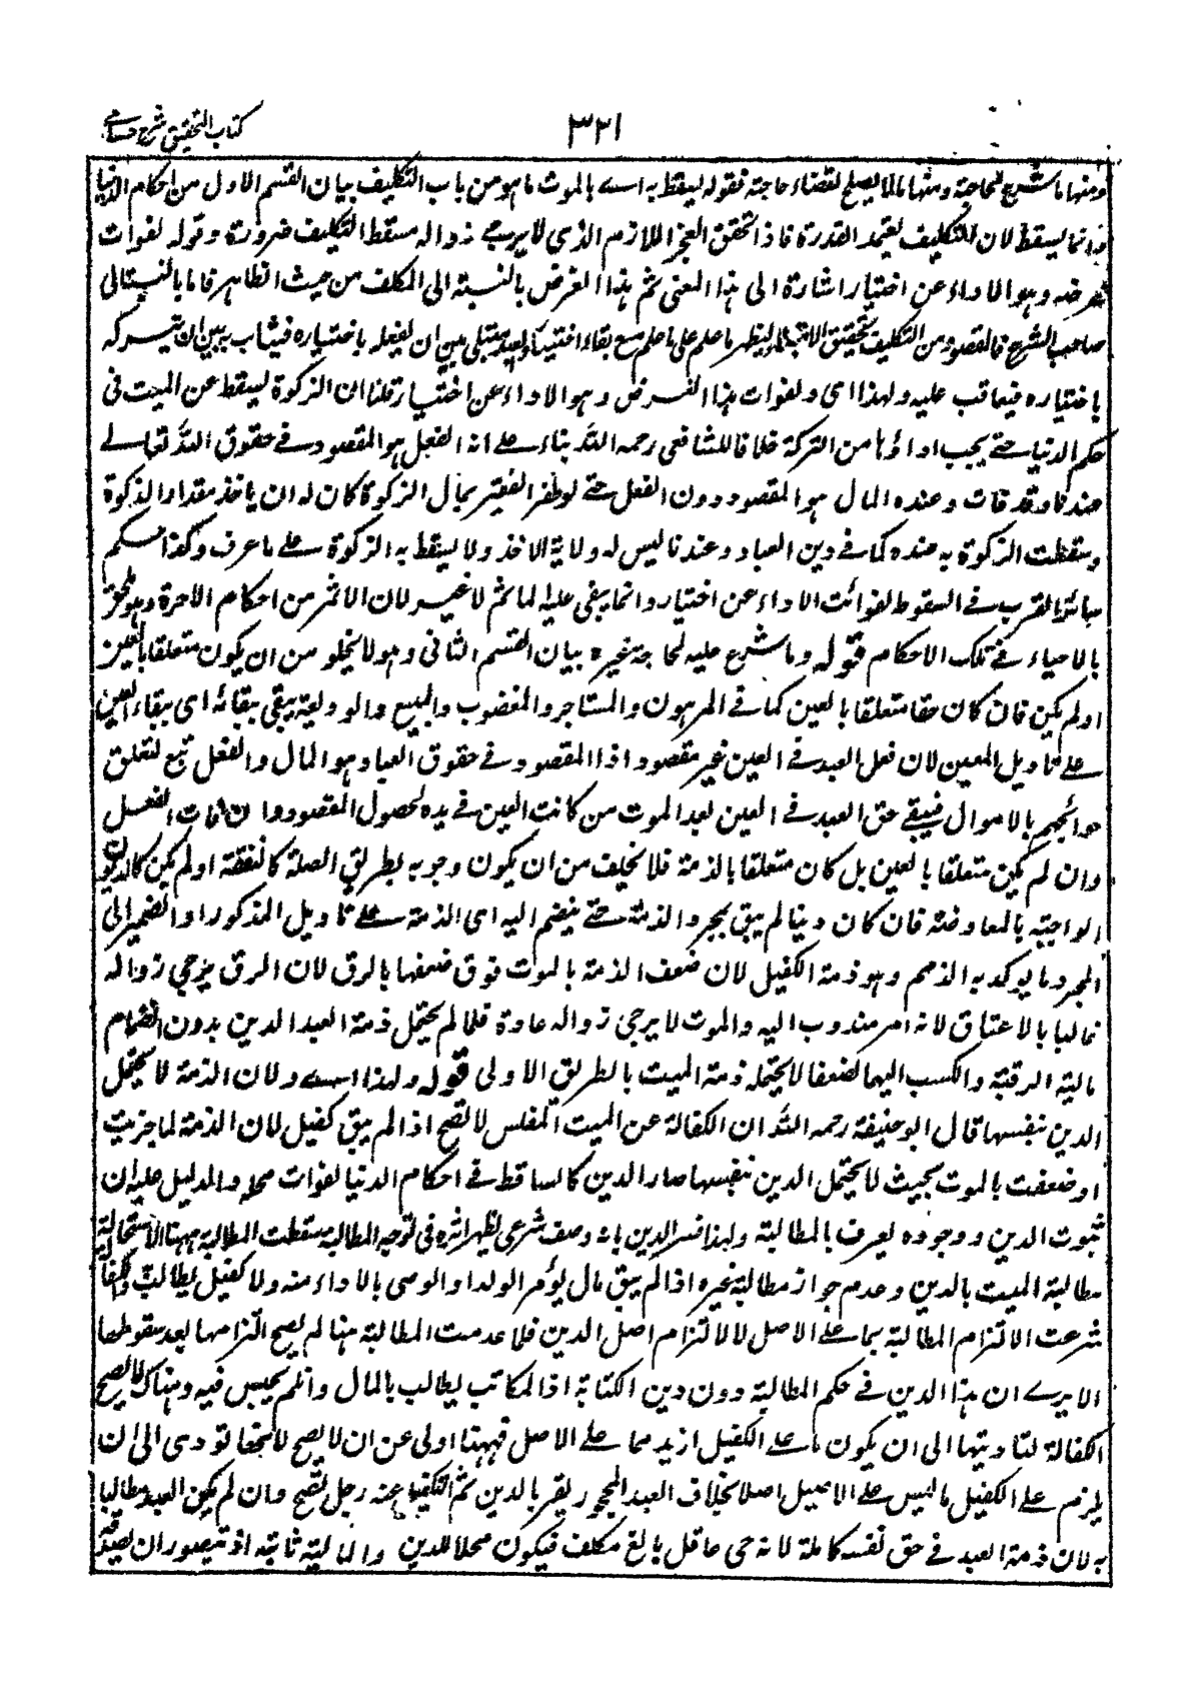 كتاب التحقيق شرح حسامى
٣٢١
ومنها ما شرع لحاجة ومنها ما لا يصلح لقضاء حاجته فقوله يسقط به اے بالموت ما هو من باب التكليف بيان القسم الاول من احكام الدنيا
وانما يسقط لان التكليف يعتمد القدرة فاذا تحقق العجز اللازم الذى لا يرجے زواله سقط التكليف ضرورة وقوله لفوات
غرضه وهو الاداء عن اختيار اشارة الى هذا المعنى ثم هذا الغرض بالنسبة الى المكلف من حيث الظاهر فاما بالنسبة الى
صاحب الشرع فالمقصود من التكليف تحقيق الابتلاء ليظهر ما علم على ما علم مع بقاء اختيار العبد مبتلى بين ان يفعله باختياره فيثاب وبين ان يتركه
باختياره فيعاقب عليه ولهذا اى ولفوات هذا الغرض وهو الاداء عن اختيار قلنا ان الزكوة يسقط عن الميت فى
حكم الدنيا حتے يجب اداؤها من التركة خلافا للشافعى رحمه الله بناء علے ان الفعل هو المقصود فے حقوق الله تعالے
عندنا وقد فات وعنده المال هو المقصود دون الفعل حتے لو ظفر الفقير بمال الزكوة كان له ان ياخذ مقدار الزكوة
وسقطت الزكوة به عنده كما فے دين العباد وعندنا ليس له ولاية الاخذ ولا يسقط به الزكوة علے ما عرف وكذا حكم
سائر القرب فے السقوط لفوائت الاداء عن اختيار وانما يبقى عليه الماثم لا غير لان الاثم من احكام الاخرة وهو ملحق
بالاحياء فے تلك الاحكام قوله وما شرع عليه لحاجة غيره بيان القسم الثانى وهو لا يخلو من ان يكون متعلقا بالعين
او لم يكن فان كان حقا متعلقا بالعين كما فے المرهون والمستاجر والمغصوب والمبيع والوديعة يبقى ببقائه اى ببقاء العين
علے تاويل المعين لان فعل العبد فے العين غير مقصود اذا المقصود فے حقوق العباد هو المال والفعل تبع لتعلق
حوائجهم بالاموال فيبقے حق العبد فے العين بعد الموت من كانت العين فے يده لحصول المقصود وان فات الفعل
وان لم يكن متعلقا بالعين بل كان متعلقا بالذمة فلا يخلف من ان يكون وجوبه بطريق الصلة كالنفقة او لم يكن كالديون
الواجبة بالمعاوضة فان كان دينا لم يبق بمجرد الذمة حتے ينضم اليه اى الذمة علے تاويل المذكور او الضمير الى
المجرد ما يوكد به الذمم وهو ذمة الكفيل لان ضعف الذمة بالموت فوق ضعفها بالرق لان الرق يرجى زواله
غالبا بالاعتاق لانه امر مندوب اليه والموت لا يرجى زواله عادة فلما لم يحتمل ذمة العبد الدين بدون انضمام
مالية الرقبة والكسب اليها لضعفها لا يحتمله ذمة الميت بالطريق الاولى قوله ولهذا اے ولان الذمة لا يحتمل
الدين بنفسها قال ابو حنيفة رحمه الله ان الكفالة عن الميت المفلس لا تصح اذا لم يبق كفيل لان الذمة لما خربت
او ضعفت بالموت بحيث لا يحتمل الدين بنفسها صار الدين كالساقط فے احكام الدنيا لفوات محله والدليل عليه ان
ثبوت الدين ووجوده يعرف بالمطالبة ولهذا فسر الدين بانه وصف شرعى يظهر اثره فى توجه المطالبة سقطت المطالبة ههنا لاستحالة
مطالبة الميت بالدين وعدم جواز مطالبة غيره اذا لم يبق مال يؤمر الولد او الوصى بالاداء منه ولا كفيل يطالب
شرعت لالتزام المطالبة بما على الاصل لا لالتزام اصل الدين فلما عدمت المطالبة هنا لم يصح التزامها بعد سقوطها
الا يرے ان هذا الدين فے حكم المطالبة دون دين الكتابة اذ المكاتب يطالب بالمال وان لم يحبس فيه وهناك لا يصح
الكفالة لتاديتها الى ان يكون ما علے الكفيل ازيد مما علے الاصل فههنا اولى عن ان لا يصح لانها تودى الى ان
يلزم علے الكفيل ما ليس علے الاصيل اصلا بخلاف العبد المحجور يقر بالدين ثم عنه رجل تصح وان لم يكن العبد مطالبا
به لان ذمة العبد فے حق نفسه كاملة لانه حى عاقل بالغ مكلف فيكون محلا للدين والمالية ثابتة اذ يتصور ان